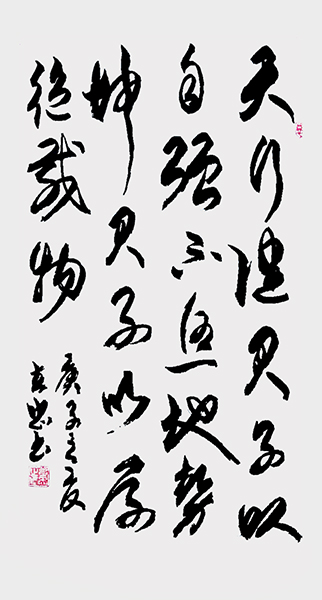 天行健君子以
自强不息地势
坤君子以厚
德载物
庚子之夏
忠书